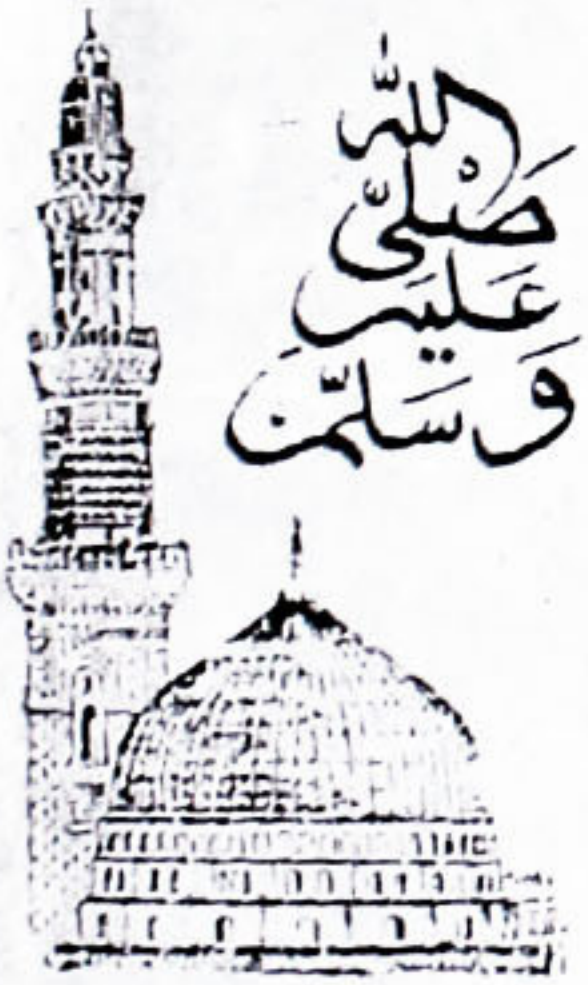 صَلَّى الله
عَلَيه
وَسَلَّم